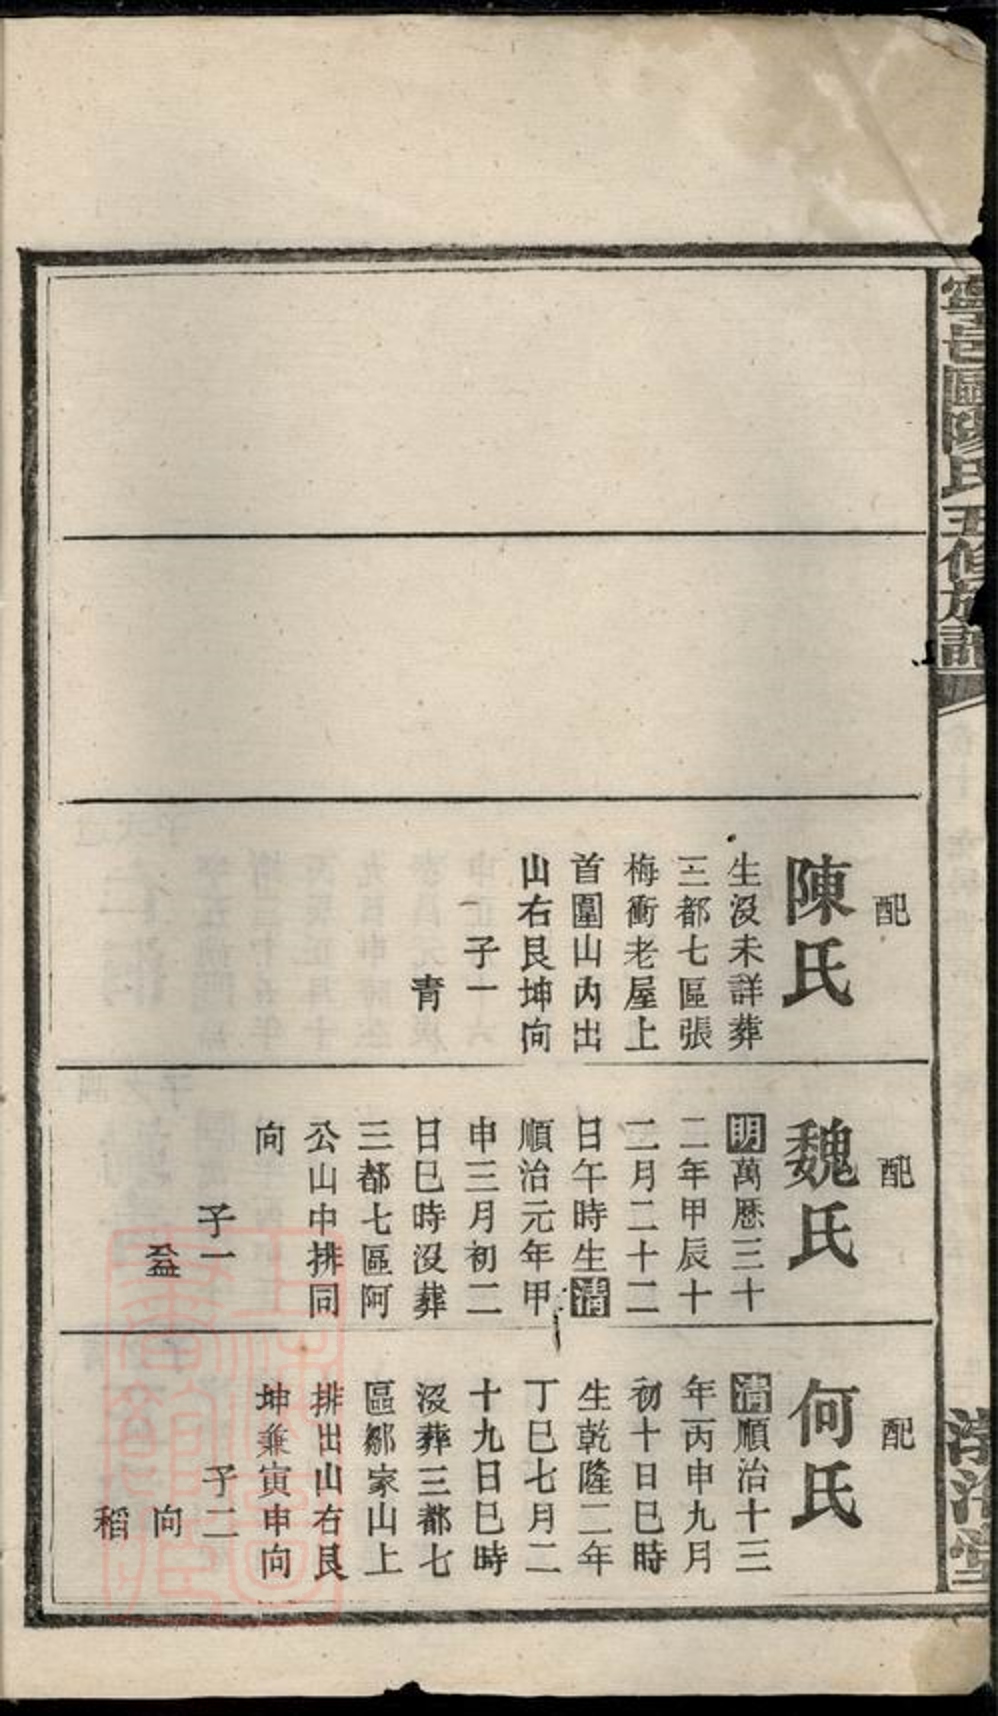 寧邑歐陽氏五修族譜
配
陳氏
生沒未詳葬
三都七區張
梅衝老屋上
首圍山內出
山右艮坤向
子一
青
配
魏氏
明萬厯三十
二年甲辰十
二月二十二
日午時生清
順治元年甲
申三月初二
日巳時沒葬
三都七區阿
公山中排同
向
子一
益
配
何氏
清順治十三
年丙申九月
初十日巳時
生乾隆二年
丁巳七月二
十九日巳時
沒葬三都七
區鄒家山上
排出山右艮
坤兼寅申向
子二
向
稻
堂